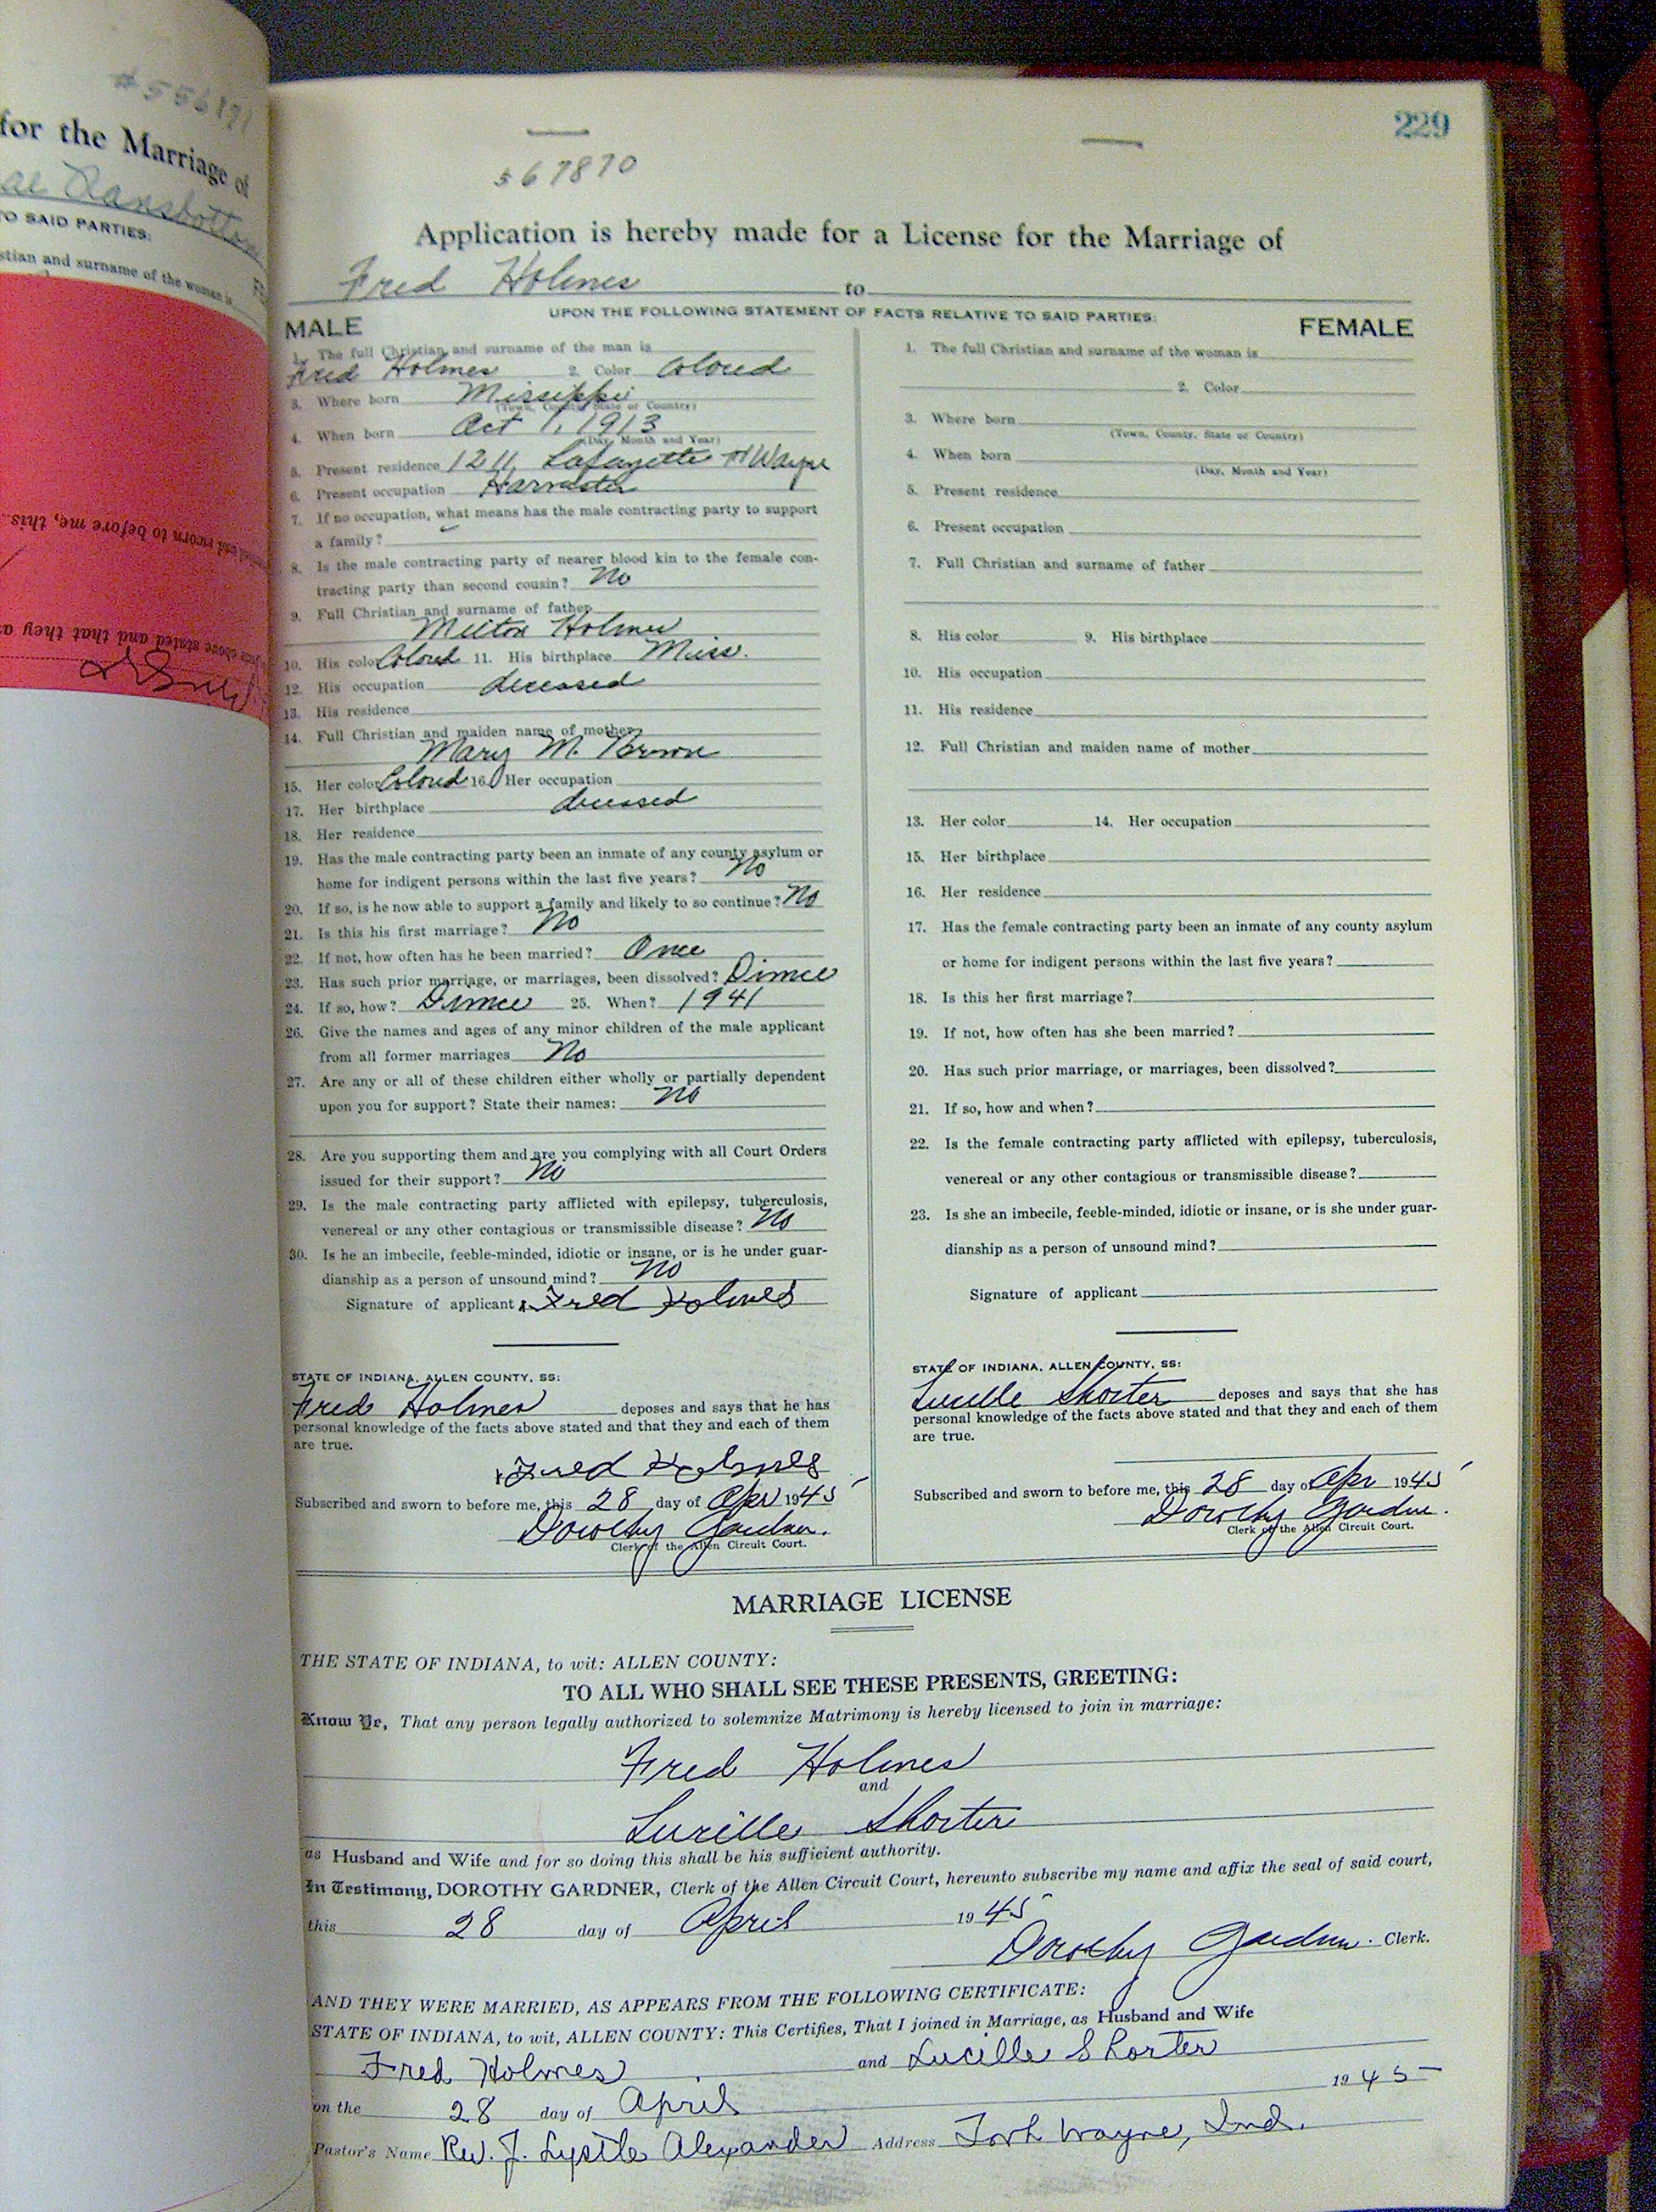 #556171
for the Marriage of
ae Ransbottom
TO SAID PARTIES:
stian and surname of the woman is
sworn to before me, this
above stated and that they a
229
567870
Application is hereby made for a License for the Marriage of
Fred Holmes to
UPON THE FOLLOWING STATEMENT OF FACTS RELATIVE TO SAID PARTIES:
MALE
1. The full Christian and surname of the man is
Fred Holmes 2. Color Colored
3. Where born Missippi
(Town, County, State or Country)
4. When born Oct 1, 1913
(Day, Month and Year)
5. Present residence 1211 Lafayette Ft Wayne
6. Present occupation Harvester
7. If no occupation, what means has the male contracting party to support
a family?
8. Is the male contracting party of nearer blood kin to the female con-
tracting party than second cousin? No
9. Full Christian and surname of father
Milton Holmes
10. His color Colored 11. His birthplace Miss.
12. His occupation deceased
13. His residence
14. Full Christian and maiden name of mother
Mary M. Brown
15. Her color Colored 16. Her occupation
17. Her birthplace deceased
18. Her residence
19. Has the male contracting party been an inmate of any county asylum or
home for indigent persons within the last five years? No
20. If so, is he now able to support a family and likely to so continue? No
21. Is this his first marriage? No
22. If not, how often has he been married? Once
23. Has such prior marriage, or marriages, been dissolved? Divorce
24. If so, how? Divorce 25. When? 1941
26. Give the names and ages of any minor children of the male applicant
from all former marriages No
27. Are any or all of these children either wholly or partially dependent
upon you for support? State their names: No
28. Are you supporting them and are you complying with all Court Orders
issued for their support? No
29. Is the male contracting party afflicted with epilepsy, tuberculosis,
venereal or any other contagious or transmissible disease? No
30. Is he an imbecile, feeble-minded, idiotic or insane, or is he under guar-
dianship as a person of unsound mind? No
Signature of applicant x Fred Holmes
STATE OF INDIANA, ALLEN COUNTY, SS:
Fred Holmes deposes and says that he has
personal knowledge of the facts above stated and that they and each of them
are true.
x Fred Holmes
Subscribed and sworn to before me, this 28 day of Apr 1945
Dorothy Gardner.
Clerk of the Allen Circuit Court.
FEMALE
1. The full Christian and surname of the woman is
2. Color
3. Where born
(Town, County, State or Country)
4. When born
(Day, Month and Year)
5. Present residence
6. Present occupation
7. Full Christian and surname of father
8. His color 9. His birthplace
10. His occupation
11. His residence
12. Full Christian and maiden name of mother
13. Her color 14. Her occupation
15. Her birthplace
16. Her residence
17. Has the female contracting party been an inmate of any county asylum
or home for indigent persons within the last five years?
18. Is this her first marriage?
19. If not, how often has she been married?
20. Has such prior marriage, or marriages, been dissolved?
21. If so, how and when?
22. Is the female contracting party afflicted with epilepsy, tuberculosis,
venereal or any other contagious or transmissible disease?
23. Is she an imbecile, feeble-minded, idiotic or insane, or is she under guar-
dianship as a person of unsound mind?
Signature of applicant
STATE OF INDIANA, ALLEN COUNTY, SS:
Lucille Shorter deposes and says that she has
personal knowledge of the facts above stated and that they and each of them
are true.
Subscribed and sworn to before me, this 28 day of Apr 1945
Dorothy Gardner.
Clerk of the Allen Circuit Court.
MARRIAGE LICENSE
THE STATE OF INDIANA, to wit: ALLEN COUNTY:
TO ALL WHO SHALL SEE THESE PRESENTS, GREETING:
Know Ye, That any person legally authorized to solemnize Matrimony is hereby licensed to join in marriage:
Fred Holmes
and
Lucille Shorter
as Husband and Wife and for so doing this shall be his sufficient authority.
In Testimony, DOROTHY GARDNER, Clerk of the Allen Circuit Court, hereunto subscribe my name and affix the seal of said court,
this 28 day of April 1945
Dorothy Gardner. Clerk.
AND THEY WERE MARRIED, AS APPEARS FROM THE FOLLOWING CERTIFICATE:
STATE OF INDIANA, to wit, ALLEN COUNTY: This Certifies, That I joined in Marriage, as Husband and Wife
Fred Holmes and Lucille Shorter
on the 28 day of April 1945
Pastor's Name Rev. J. Lystle Alexander Address Fort Wayne, Ind.